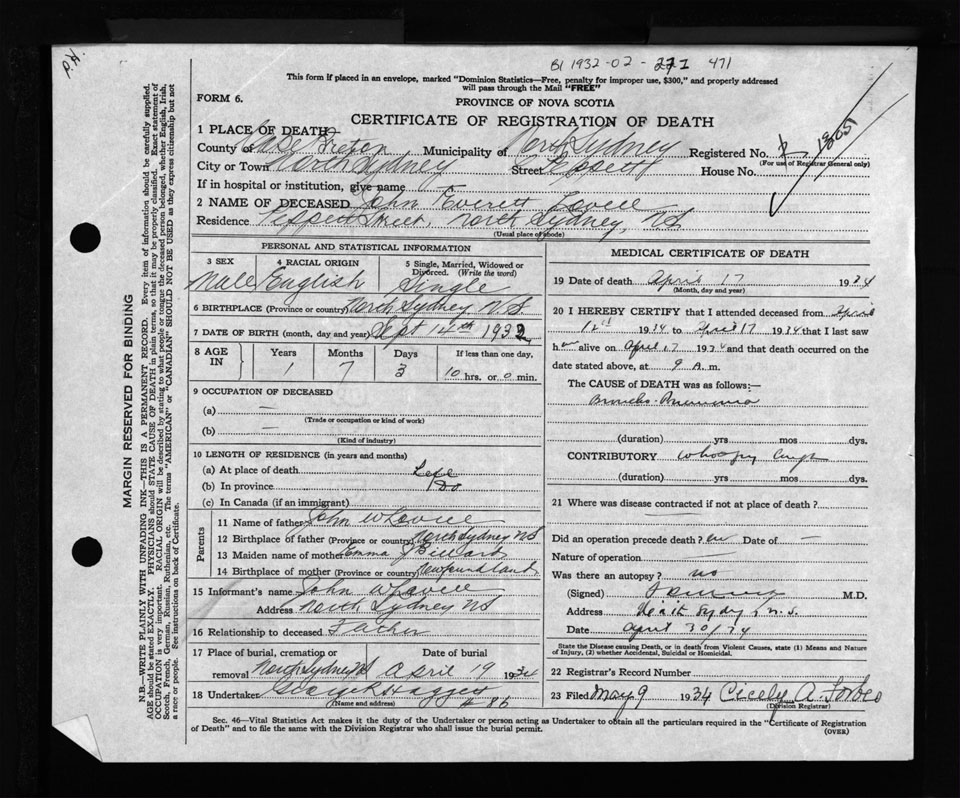 P.H.
B1 1932-02-271 471
This form if placed in an envelope, marked "Dominion Statistics—Free, penalty for improper use, $300," and properly addressed
will pass through the Mail "FREE"
FORM 6.
PROVINCE OF NOVA SCOTIA
CERTIFICATE OF REGISTRATION OF DEATH
1 PLACE OF DEATH—
County of Cape Breton Municipality of North Sydney Registered No.
(For use of Registrar General only)
City or Town North Sydney Street House No.
If in hospital or institution, give name
2 NAME OF DECEASED John Everett Lovell
Residence Street, North Sydney, N.S.
(Usual place of abode)
PERSONAL AND STATISTICAL INFORMATION
3 SEX Male
4 RACIAL ORIGIN English
5 Single, Married, Widowed or Divorced. (Write the word) Single
6 BIRTHPLACE (Province or country) North Sydney N.S.
7 DATE OF BIRTH (month, day and year) Sept 14th 1932
8 AGE IN Years Months Days If less than one day.
1 7 3 10 hrs. or 0 min.
9 OCCUPATION OF DECEASED
(a) —
(Trade or occupation or kind of work)
(b) —
(Kind of industry)
10 LENGTH OF RESIDENCE (in years and months)
(a) At place of death Life
(b) In province Do
(c) In Canada (if an immigrant)
Parents
11 Name of father John W Lovell
12 Birthplace of father (Province or country) North Sydney NS
13 Maiden name of mother Emma J
14 Birthplace of mother (Province or country) Newfoundland
15 Informant's name John W Lovell
Address North Sydney NS
16 Relationship to deceased Father
17 Place of burial, cremation or removal North Sydney NS
Date of burial April 19 1934
18 Undertaker
(Name and address) # 86
MEDICAL CERTIFICATE OF DEATH
19 Date of death April 17 1934
(Month, day and year)
20 I HEREBY CERTIFY that I attended deceased from April
12th 1934 to April 17 1934 that I last saw
him alive on April 17 1934 and that death occurred on the
date stated above, at 9 A.m.
The CAUSE of DEATH was as follows:—
Broncho-Pneumonia
(duration) yrs mos dys.
CONTRIBUTORY Whooping Cough
(duration) yrs mos dys.
21 Where was disease contracted if not at place of death?
Did an operation precede death? Date of —
Nature of operation
Was there an autopsy? no
(Signed) M.D.
Address North Sydney N.S.
Date April 30/34
State the Disease causing Death, or in death from Violent Causes, state (1) Means and Nature of Injury, (2) whether Accidental, Suicidal or Homicidal.
22 Registrar's Record Number
23 Filed May 9 1934 Cicely A. Forbes
(Division Registrar)
Sec. 46—Vital Statistics Act makes it the duty of the Undertaker or person acting as Undertaker to obtain all the particulars required in the "Certificate of Registration
of Death" and to file the same with the Division Registrar who shall issue the burial permit.
(OVER)
MARGIN RESERVED FOR BINDING
N.B.—WRITE PLAINLY, WITH UNFADING INK—THIS IS A PERMANENT RECORD. Every item of information should be carefully supplied.
AGE should be stated EXACTLY. PHYSICIANS should STATE CAUSE OF DEATH in plain terms, so that it may be properly classified. Exact statement of
OCCUPATION is very important. RACIAL ORIGIN will be described by stating to what people or tongue the deceased person belonged, whether English, Irish,
Scotch, French, German, Russian, Ruthenian, etc. The terms "AMERICAN" or "CANADIAN" SHOULD NOT BE USED as they express citizenship but not
a race or people. See instructions on back of Certificate.